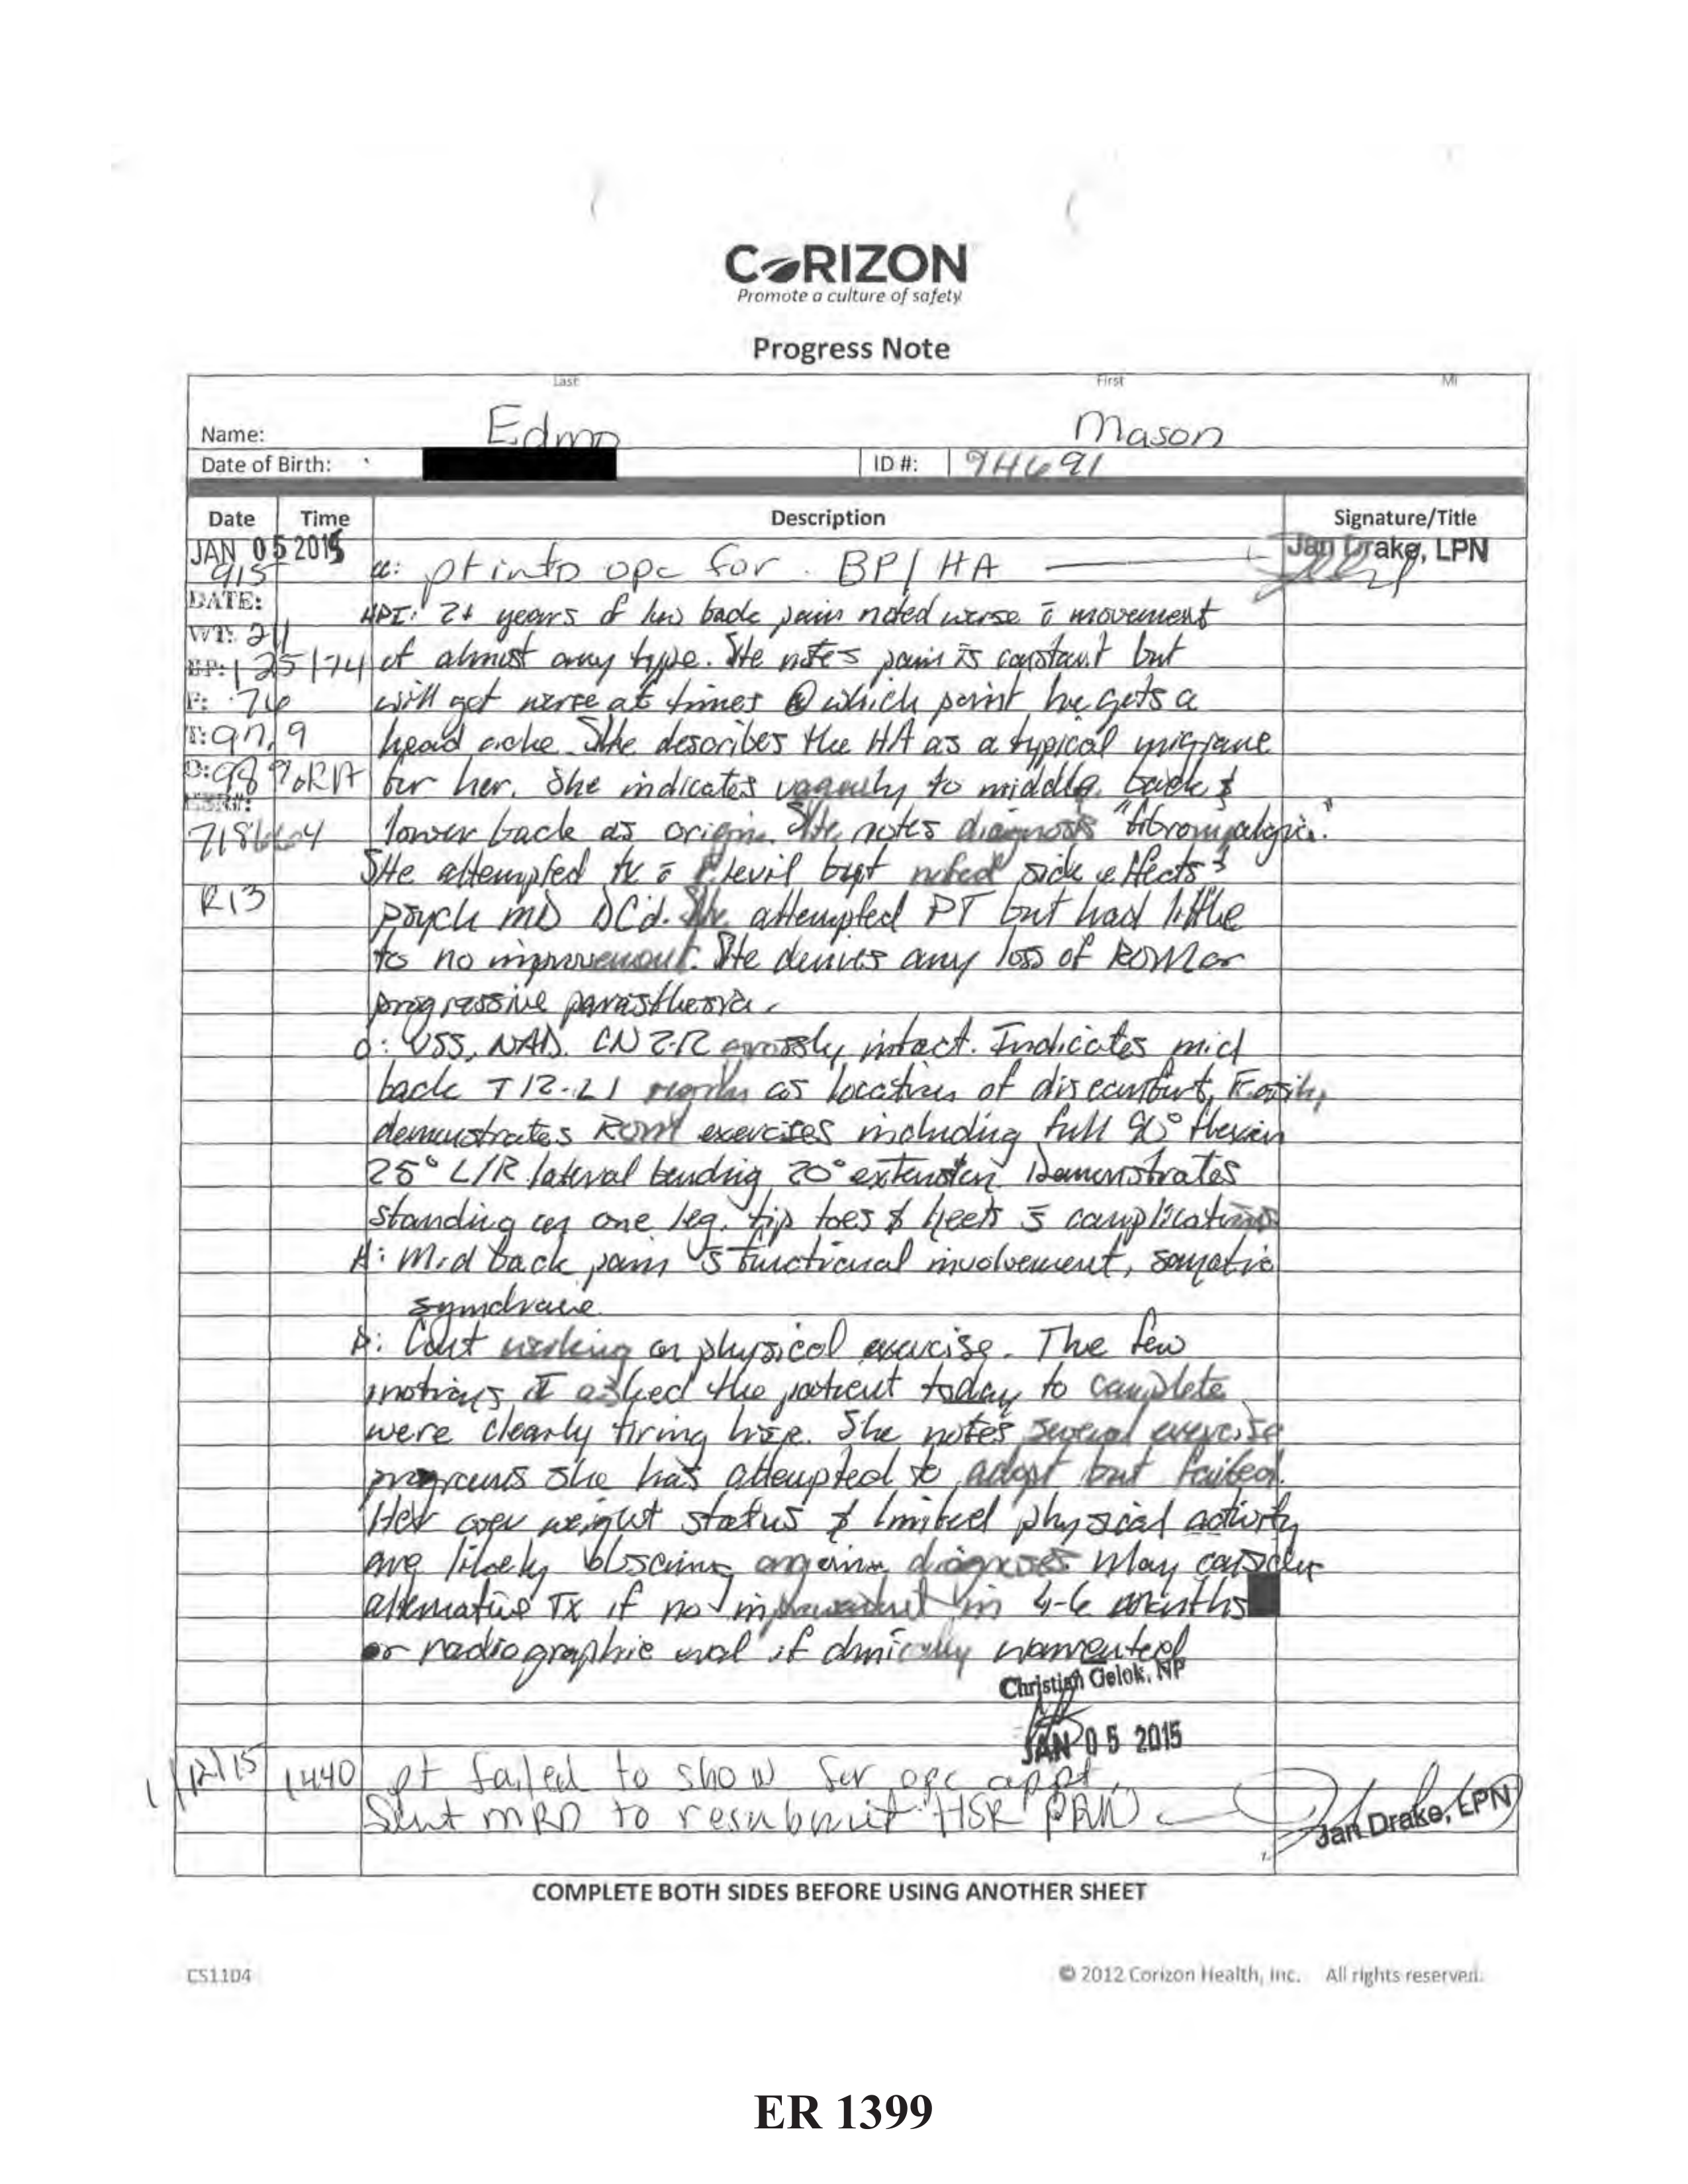 CORIZON
Promote a culture of safety
Progress Note
Last First MI
Name: Edmo Mason
Date of Birth: ID #: 94691
Date Time Description Signature/Title
JAN 05 2015 Jan Drake, LPN
915 cc: pt into opc for BP/HA
DATE:
HPI: 2+ years of low back pain noted worse c̄ movement
WT: 211
BP: 125/74 of almost any type. She notes pain is constant but
P: 76 will get worse at times @ which point he gets a
T: 97.9 head ache. She describes the HA as a typical migrane
O: 98%RA for her. She indicates vaguely to middle back &
HSR#:
lower back as origin. She notes diagnosis "fibromyalgia."
R13 She attempted tx c̄ but noted side effects &
psych MD DC'd. She attempted PT but had little
to no improvement. She denies any loss of ROM or
progressive parasthesia.
O: VSS, NAD. CN 2-12 grossly intact. Indicates mid
back T12-L1 region as location of discomfort. Easily
demonstrates ROM exercises including full 90° flexion
25° L/R lateral bending 20° extension. Demonstrates
standing on one leg, tip toes & heels s̄ complications
A: Mid back pain s̄ functional involvement, somatic
syndrome.
P: Cont working on physical exercise. The few
motions I asked the patient today to complete
were clearly tiring her. She notes several exercise
programs she has attempted to adopt but failed.
Her over weight status & limited physical activity
are likely diagnoses May consider
alternative Tx if no improvement in 4-6 months
or radiographic eval if clinically warranted
Christian Gelok, NP
JAN 05 2015
1/12/15 1440 pt failed to show for opc appt.
Sent MRD to resubmit HSR PRN Jan Drake, LPN
COMPLETE BOTH SIDES BEFORE USING ANOTHER SHEET
CS1104 © 2012 Corizon Health, Inc. All rights reserved.
ER 1399